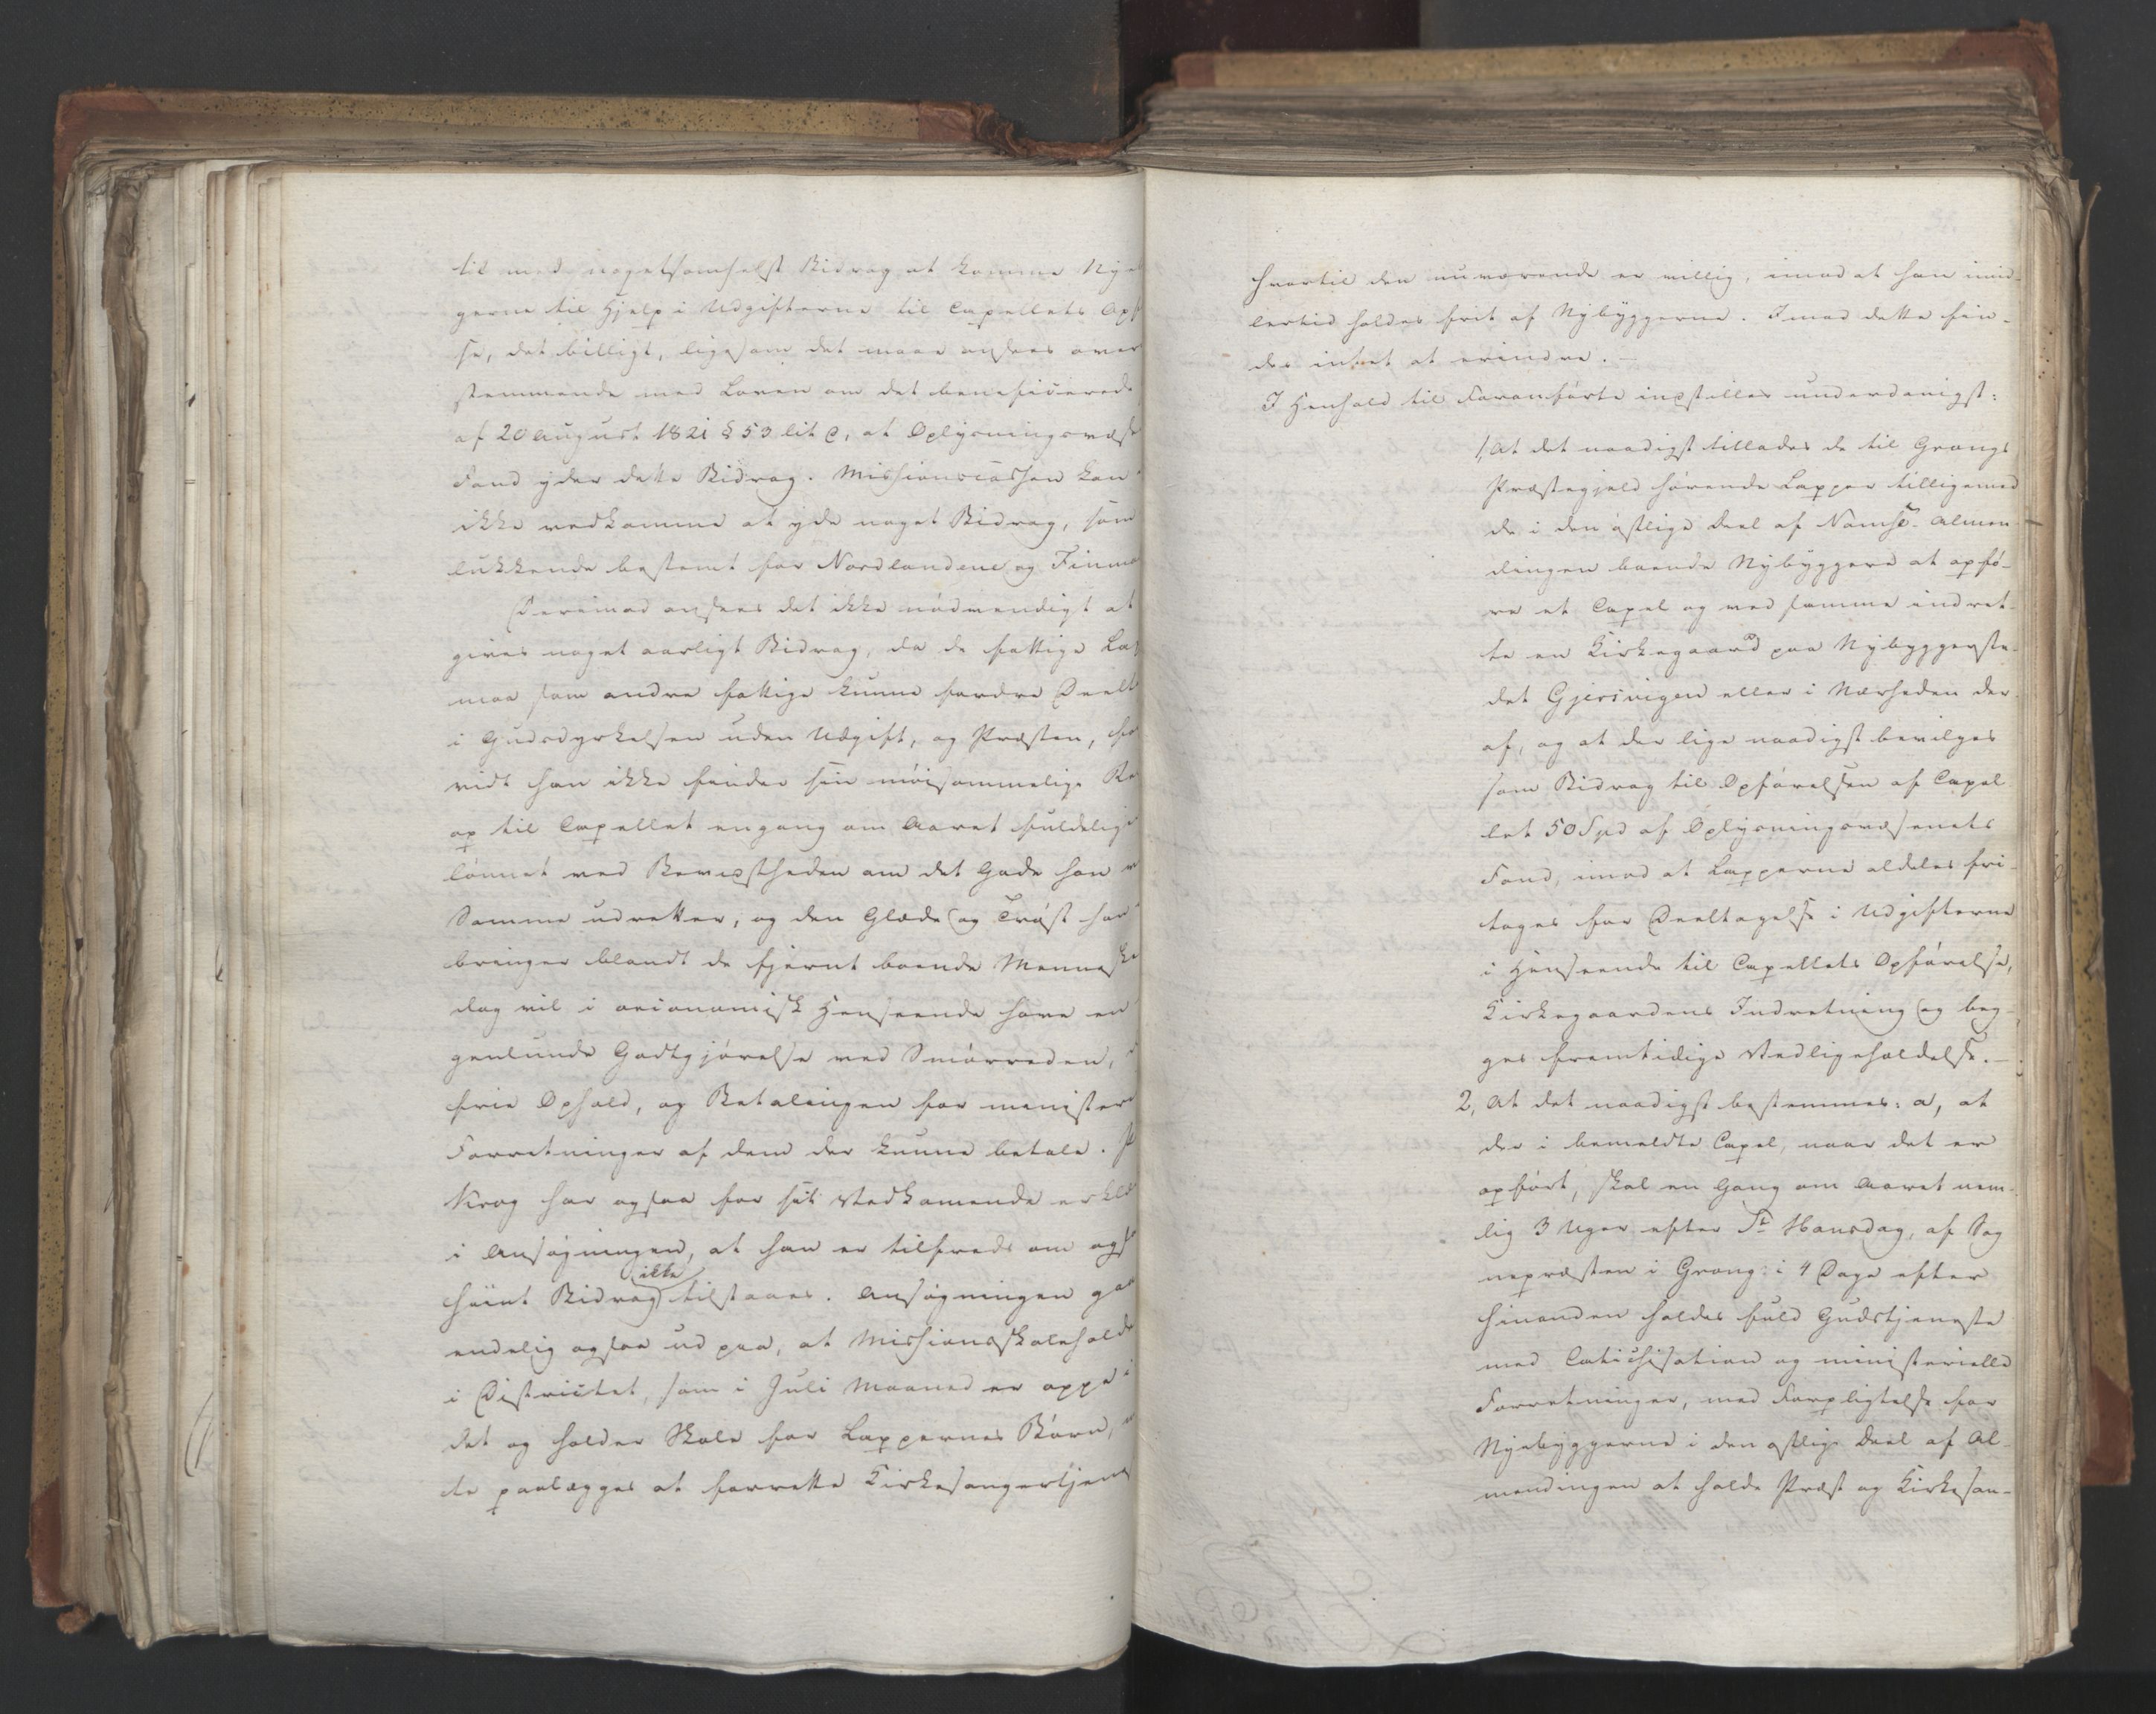 til med nogetsomhelst Bidrag at komme Nye
gerne til Hjelp i Udgifterne til Capellets Opf
se, det billigt, ligesom det maae ansees over
stemmende med Loven om det beneficerede
af 20 August 1821 § 53 lit c, at Oplysningsvæse
Fond yder dette Bidrag. Missionscassen kan
ikke vedkomme at yde noget Bidrag, som
lukkende bestemt for Nordlandene og Finma
Derimod ansees det ikke nödvendigt at
gives noget aarligt Bidrag, da de fattige La
maa som andre fattige kunne fordre Deelt
i Gudsdyrkelsen uden Udgift, og Præsten, for
vidt han ikke finder sin möisommelige Re
op til Capellet engang om Aaret fuldelig
lönnet ved Bevidstheden om det Gode han v
Samme udretter, og den Glæde og Tröst han
bringer blandt de fjernt boende Menneske
dog vil i oeconomisk Henseende have en
genlunde Godtgjörelse ved Smörreden,
frie Ophold, og Betalingen for minister
Forretninger af dem der kunne betale. P
Krog har ogsaa for sit Vedkomende erklæ
i Ansögningen, at han er tilfreds om ogs
ikke
saint Bidrag tilstaaes. Ansögningen gaa
endelig ogsaa ud paa, at Missionsskolehold
i Districtet, som i Juli Maaned er oppe i
det og holder Skole for Lappernes Börn,
te paalægges at forrette Kirkesangertjene
hvortil den nuværende er villig, imod at han imid-
lertid holdes frit af Nybyggerne. Imod dette fin-
des intet at erindre. —
I Henhold til Foranförte indstilles underdanigst:
1, At det naadigst tillades de til Grongs
Præstegjeld hörende Lapper tilligemed
de i den östlige Deel af Namse-Almen-
dingen boende Nybyggere at opfö-
re et Capel og ved samme indret-
te en Kirkegaard paa Nybyggerste-
det Gjersvigen eller i Nærheden der-
af, og at der lige naadigst bevilges
som Bidrag til Opförelsen af Capel
let 50 Spd af Oplysningsvæsenets
Fond, imod at Lapperne aldeles fri-
tages for Deeltagelse i Udgifterne
i Henseende til Capellets Opförelse,
Kirkegaardens Indretning og beg-
ges fremtidige Vedligeholdelse. —
2, At det naadigst bestemmes: a, at
der i bemeldte Capel, naar det er
opfört, skal en Gang om Aaret nem-
lig 3 Uger efter St Hansdag, af Sog
nepræsten i Grong i 4 Dage efter
hinanden holdes fuld Gudstjeneste
med Catichisation og ministerielle
Forretninger, med Forpligtelse for
Nyebyggerne i den östlige Deel af Al-
mendingen at holde Præst og Kirkesan-